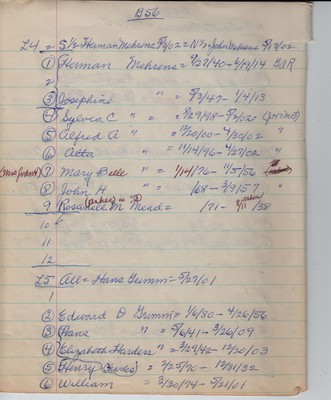 B56
L4 = S 1/2 Herman Mehrens 5/3/02 = N 1/2 = John Mehrens 5/3/02
① Herman Mehrens = 9/27/40 - 6/19/14 GAR
2
③ Josephine " = 5/3/47 - 1/4/13
④ Sylvia C " = 9/29/98 - 5/2/02
⑤ Alfred A " = 12/20/00 - 4/30/02 "
⑥ Atta " = 11/14/96 - 4/27/02 "
⑦ Mary Belle " = 1/14/76 - 11/5/56
⑧ John H " = /68 - 3/9/57 "
9 M Mead = /71 - /38
10
11
12
L5 All = Hans Grimm = 5/27/01
1
② Edward D Grimm = 1/6/80 - 4/26/56
③ Hans " = 5/6/41 - 3/26/09
④ Elizabeth Harders " = 3/29/42 - 12/30/03
⑤ Henry = 7/25/70 - 12/21/32
⑥ William = 3/20/74 - 5/21/01